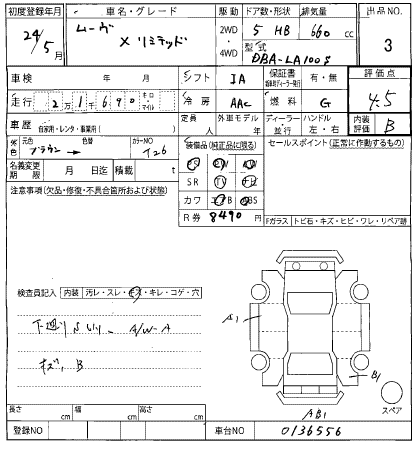 初度登録年月 車名・グレード 駆動 ドア数・形状 排気量 出品NO.
24年 5月 ムーヴ X リミテッド 2WD・4WD 5 HB 660 cc 3
型式 DBA-LA100S
車検 年 月 シフト IA 保証書 有・無 評価点
走行 2万1千690 キロ・マイル 冷房 AAC 燃料 G 4.5
車歴 自家用・レンタ・事業用( ) 定員 人 外車モデル 年 ディーラー・並行 ハンドル 左・右 内装評価 B
外色 元色 ブラウン 色替 カラーNO T26 装備品(純正品に限る) セールスポイント(正常に作動するもの)
名義変更期限 月 日迄 積載 t SR TV
注意事項(欠品・修復・不具合箇所および状態) カワ
R券 8490円 Fガラス トビ石・キズ・ヒビ・ワレ・リペア跡
検査員記入 内装 汚レ・スレ・キズ・キレ・コゲ・穴
A/W-A
キズ、B
A1
B1
AB1
スペア
長さ cm 幅 cm 高さ cm
登録NO 車台NO 0136556